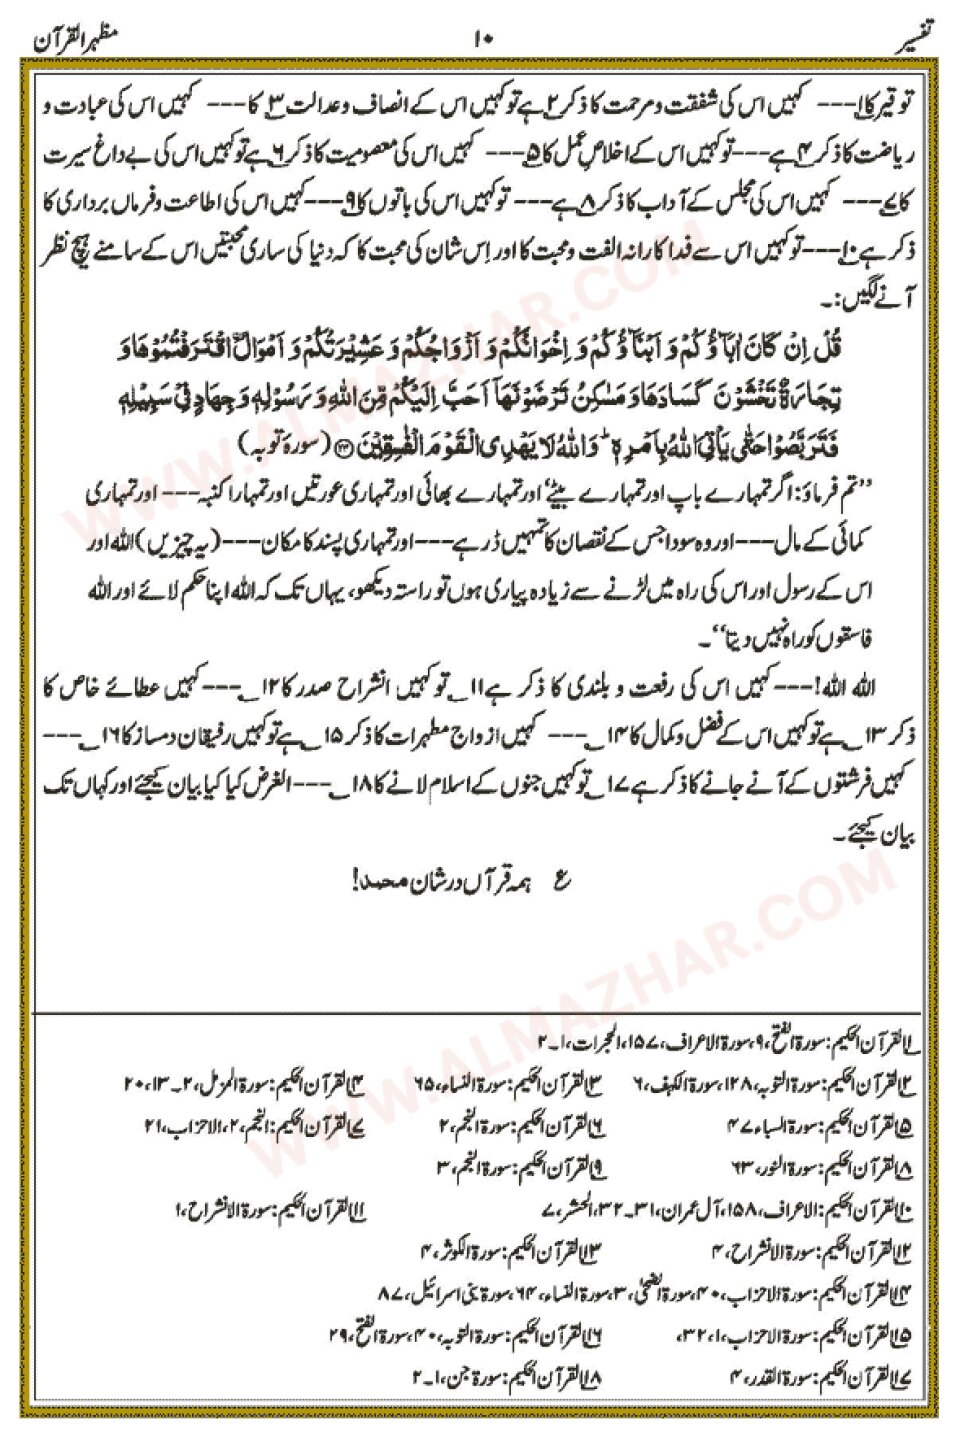 تفسیر ۱۰ مظہر القرآن
توقیر کا۱--- کہیں اس کی شفقت و مرحمت کا ذکر۲ ہے تو کہیں اس کے انصاف و عدالت۳ کا--- کہیں اس کی عبادت و
ریاضت کا ذکر۴ ہے--- تو کہیں اس کے اخلاصِ عمل کا۵--- کہیں اس کی معصومیت کا ذکر۶ ہے تو کہیں اس کی بے داغ سیرت
کا۷--- کہیں اس کی مجلس کے آداب کا ذکر۸ ہے--- تو کہیں اس کی باتوں کا۹--- کہیں اس کی اطاعت و فرماں برداری کا
ذکر ہے۱۰--- تو کہیں اس سے فداکارانہ الفت و محبت کا اور اِس شان کی محبت کا کہ دنیا کی ساری محبتیں اس کے سامنے ہیچ نظر
آنے لگیں:۔
قُلْ اِنْ كَانَ اٰبَآؤُكُمْ وَ اَبْنَآؤُكُمْ وَ اِخْوَانُكُمْ وَ اَزْوَاجُكُمْ وَ عَشِیْرَتُكُمْ وَ اَمْوَالُ اقْتَرَفْتُمُوْهَا وَ
تِجَارَةٌ تَخْشَوْنَ كَسَادَهَا وَ مَسٰكِنُ تَرْضَوْنَهَاۤ اَحَبَّ اِلَیْكُمْ مِّنَ اللهِ وَ رَسُوْلِهٖ وَ جِهَادٍ فِیْ سَبِیْلِهٖ
فَتَرَبَّصُوْا حَتّٰى یَاْتِیَ اللهُ بِاَمْرِهٖ ؕ وَ اللهُ لَا یَهْدِی الْقَوْمَ الْفٰسِقِیْنَ ﴿۲۴﴾ (سورۃ توبہ)
”تم فرماؤ: اگر تمہارے باپ اور تمہارے بیٹے‘ اور تمہارے بھائی اور تمہاری عورتیں اور تمہارا کنبہ--- اور تمہاری
کمائی کے مال--- اور وہ سودا جس کے نقصان کا تمہیں ڈر ہے--- اور تمہاری پسند کا مکان---(یہ چیزیں) اللہ اور
اس کے رسول اور اس کی راہ میں لڑنے سے زیادہ پیاری ہوں تو راستہ دیکھو، یہاں تک کہ اللہ اپنا حکم لائے اور اللہ
فاسقوں کو راہ نہیں دیتا“۔
اللہ اللہ!--- کہیں اس کی رفعت و بلندی کا ذکر ہے۱۱ تو کہیں انشراح صدر کا۱۲--- کہیں عطائے خاص کا
ذکر۱۳ ہے تو کہیں اس کے فضل و کمال کا۱۴--- کہیں ازواج مطہرات کا ذکر۱۵ ہے تو کہیں رفیقان دمساز کا۱۶---
کہیں فرشتوں کے آنے جانے کا ذکر ہے۱۷ تو کہیں جنوں کے اسلام لانے کا۱۸--- الغرض کیا کیا بیان کیجئے اور کہاں تک
بیان کیجئے۔
ع ہمہ قرآں در شان محمد!
۱القرآن الحکیم: سورۃ الفتح، ۹، سورۃ الاعراف، ۱۵۷، الحجرات، ۱۔۲
۲القرآن الحکیم: سورۃ التوبہ، ۱۲۸، سورۃ الکہف، ۶ ۳القرآن الحکیم: سورۃ النساء، ۶۵ ۴القرآن الحکیم: سورۃ المزمل، ۲۔۱۳، ۲۰
۵القرآن الحکیم: سورۃ السباء ۴۷ ۶القرآن الحکیم: سورۃ النجم، ۲ ۷القرآن الحکیم: النجم، ۲، الاحزاب، ۲۱
۸القرآن الحکیم: سورۃ النور، ۶۳ ۹القرآن الحکیم: سورۃ النجم، ۳
۱۰القرآن الحکیم: الاعراف، ۱۵۸، آل عمران، ۳۱۔۳۲، الحشر، ۷ ۱۱القرآن الحکیم: سورۃ الانشراح، ۱
۱۲القرآن الحکیم: سورۃ الانشراح، ۴ ۱۳القرآن الحکیم: سورۃ الکوثر، ۴
۱۴القرآن الحکیم: سورۃ الاحزاب، ۴۰، سورۃ الضحیٰ، ۳، سورۃ النساء، ۶۴، سورۃ بنی اسرائیل، ۸۷
۱۵القرآن الحکیم: سورۃ الاحزاب، ۱، ۳۲، ۱۶القرآن الحکیم: سورۃ التوبہ، ۴۰، سورۃ الفتح، ۲۹
۱۷القرآن الحکیم: سورۃ القدر، ۴ ۱۸القرآن الحکیم: سورۃ جن، ۱۔۲
WWW.ALMAZHAR.COM
WWW.ALMAZHAR.COM